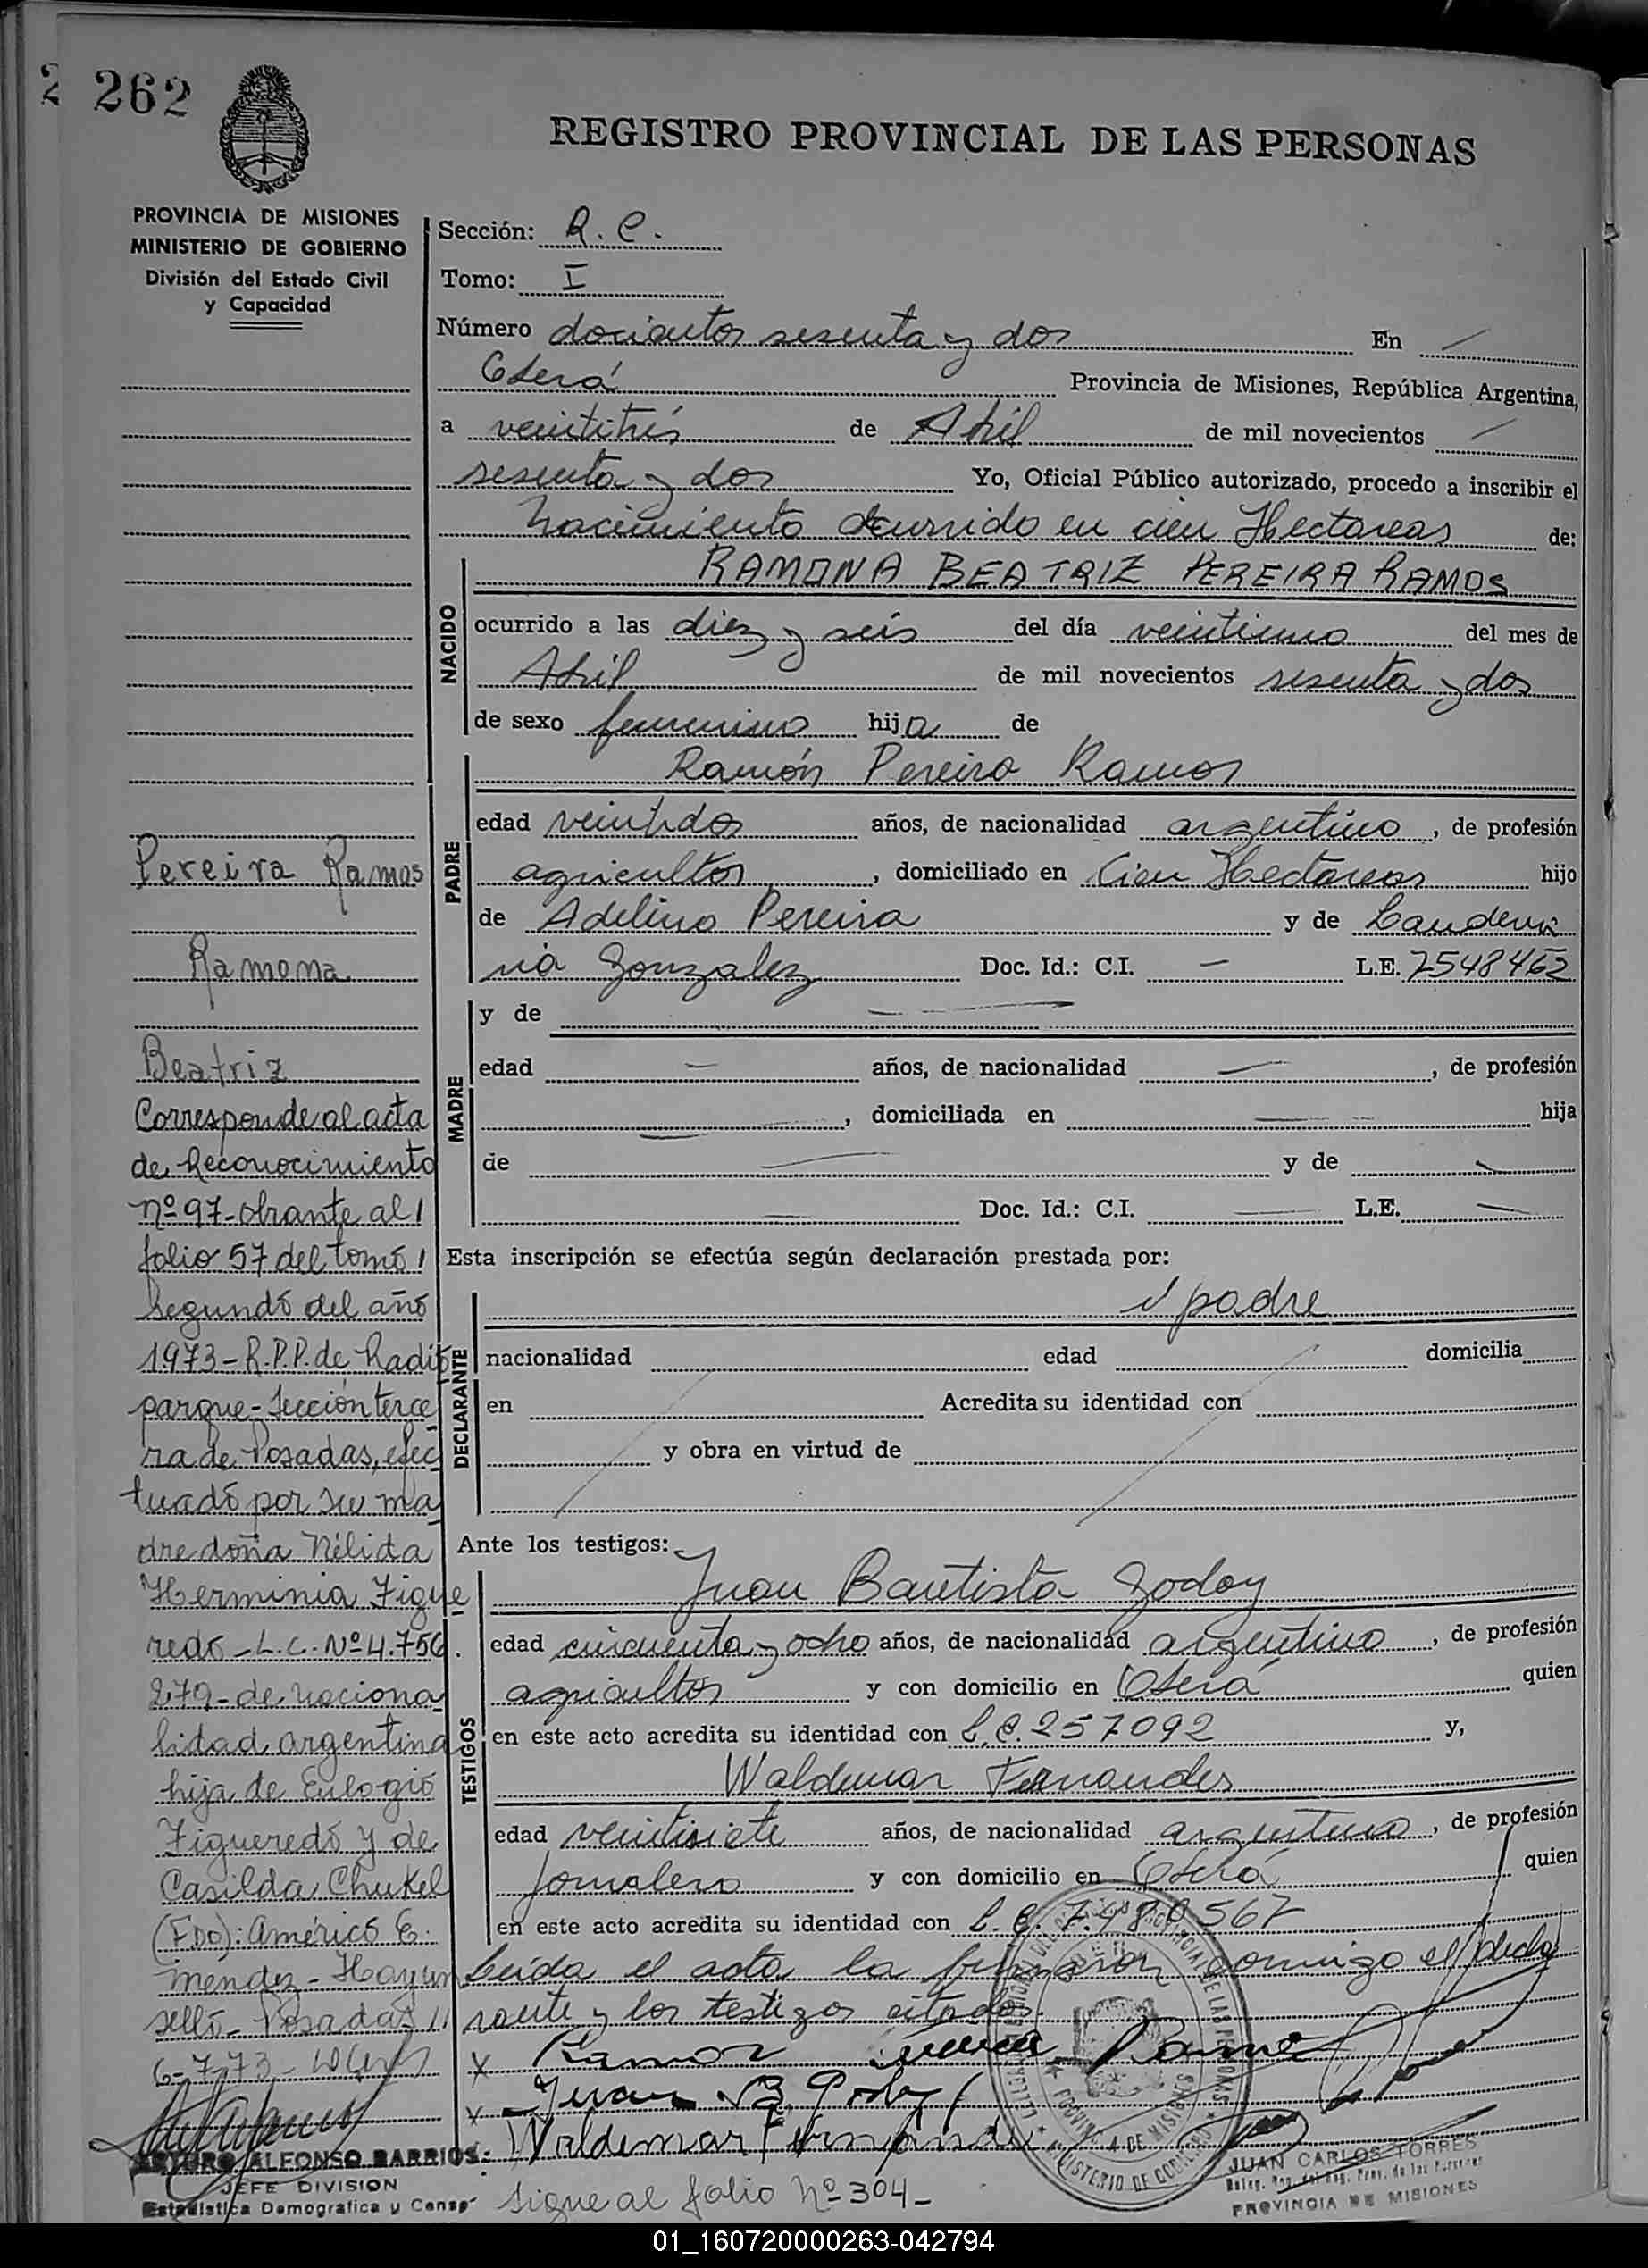 262
REGISTRO PROVINCIAL DE LAS PERSONAS
PROVINCIA DE MISIONES
MINISTERIO DE GOBIERNO
División del Estado Civil
y Capacidad
Sección: R. C.
Tomo: I
Número dociento sesenta y dos En
Oberá Provincia de Misiones, República Argentina,
a veintitrés de Abril de mil novecientos
sesenta y dos Yo, Oficial Público autorizado, procedo a inscribir el
nacimiento ocurrido en cien Hectareas de:
NACIDO
RAMONA BEATRIZ PEREIRA RAMOS
ocurrido a las diez y seis del día veintiuno del mes de
Abril de mil novecientos sesenta y dos
de sexo femenino hija de
PADRE
Ramón Pereira Ramos
edad veintidos años, de nacionalidad argentino, de profesión
agricultor, domiciliado en Cien Hectareas hijo
de Adelino Pereira y de
Gonzalez Doc. Id.: C.I. — L.E. 7548462
MADRE
y de —
edad — años, de nacionalidad —, de profesión
—, domiciliada en — hija
de — y de —
— Doc. Id.: C.I. — L.E. —
Esta inscripción se efectúa según declaración prestada por:
DECLARANTE
el padre
nacionalidad edad domicilia
en Acredita su identidad con
y obra en virtud de
Ante los testigos:
TESTIGOS
Juan Bautista Godoy
edad cincuenta y ocho años, de nacionalidad argentino, de profesión
agricultor y con domicilio en Oberá quien
en este acto acredita su identidad con L.E. 257092 y,
Waldemar Fernandes
edad veintisiete años, de nacionalidad argentino, de profesión
Jornalero y con domicilio en Oberá quien
en este acto acredita su identidad con L.E. 7.480567
Leida el acta la firmaron conmigo el decla
rante y los testigos citados.
x Ramon Pereira Ramo
x Juan B. Godoy
Waldemar Fernande
Sigue al folio Nº 304-
JUAN CARLOS TORRES
PROVINCIA DE MISIONES
Pereira Ramos
Ramona
Beatriz
Corresponde al acta
de Reconocimiento
nº 97- obrante al
folio 57 del tomo
Segundo del año
1973- R.P.P. de Radio
parque- Sección terce
ra de Posadas, efec
tuado por su ma
dre doña Nélida
Herminia Figue
redo- L.C. Nº 4.756.
279- de naciona
lidad argentina
hija de Eulogio
Figueredo y de
Casilda Chukel
(FDO): Américo E.
Méndez- Hay un
sello- Posadas
6-7-73-
ARTURO ALFONSO BARRIOS
JEFE DIVISION
Estadistica Demografica y Censo
01_160720000263-042794